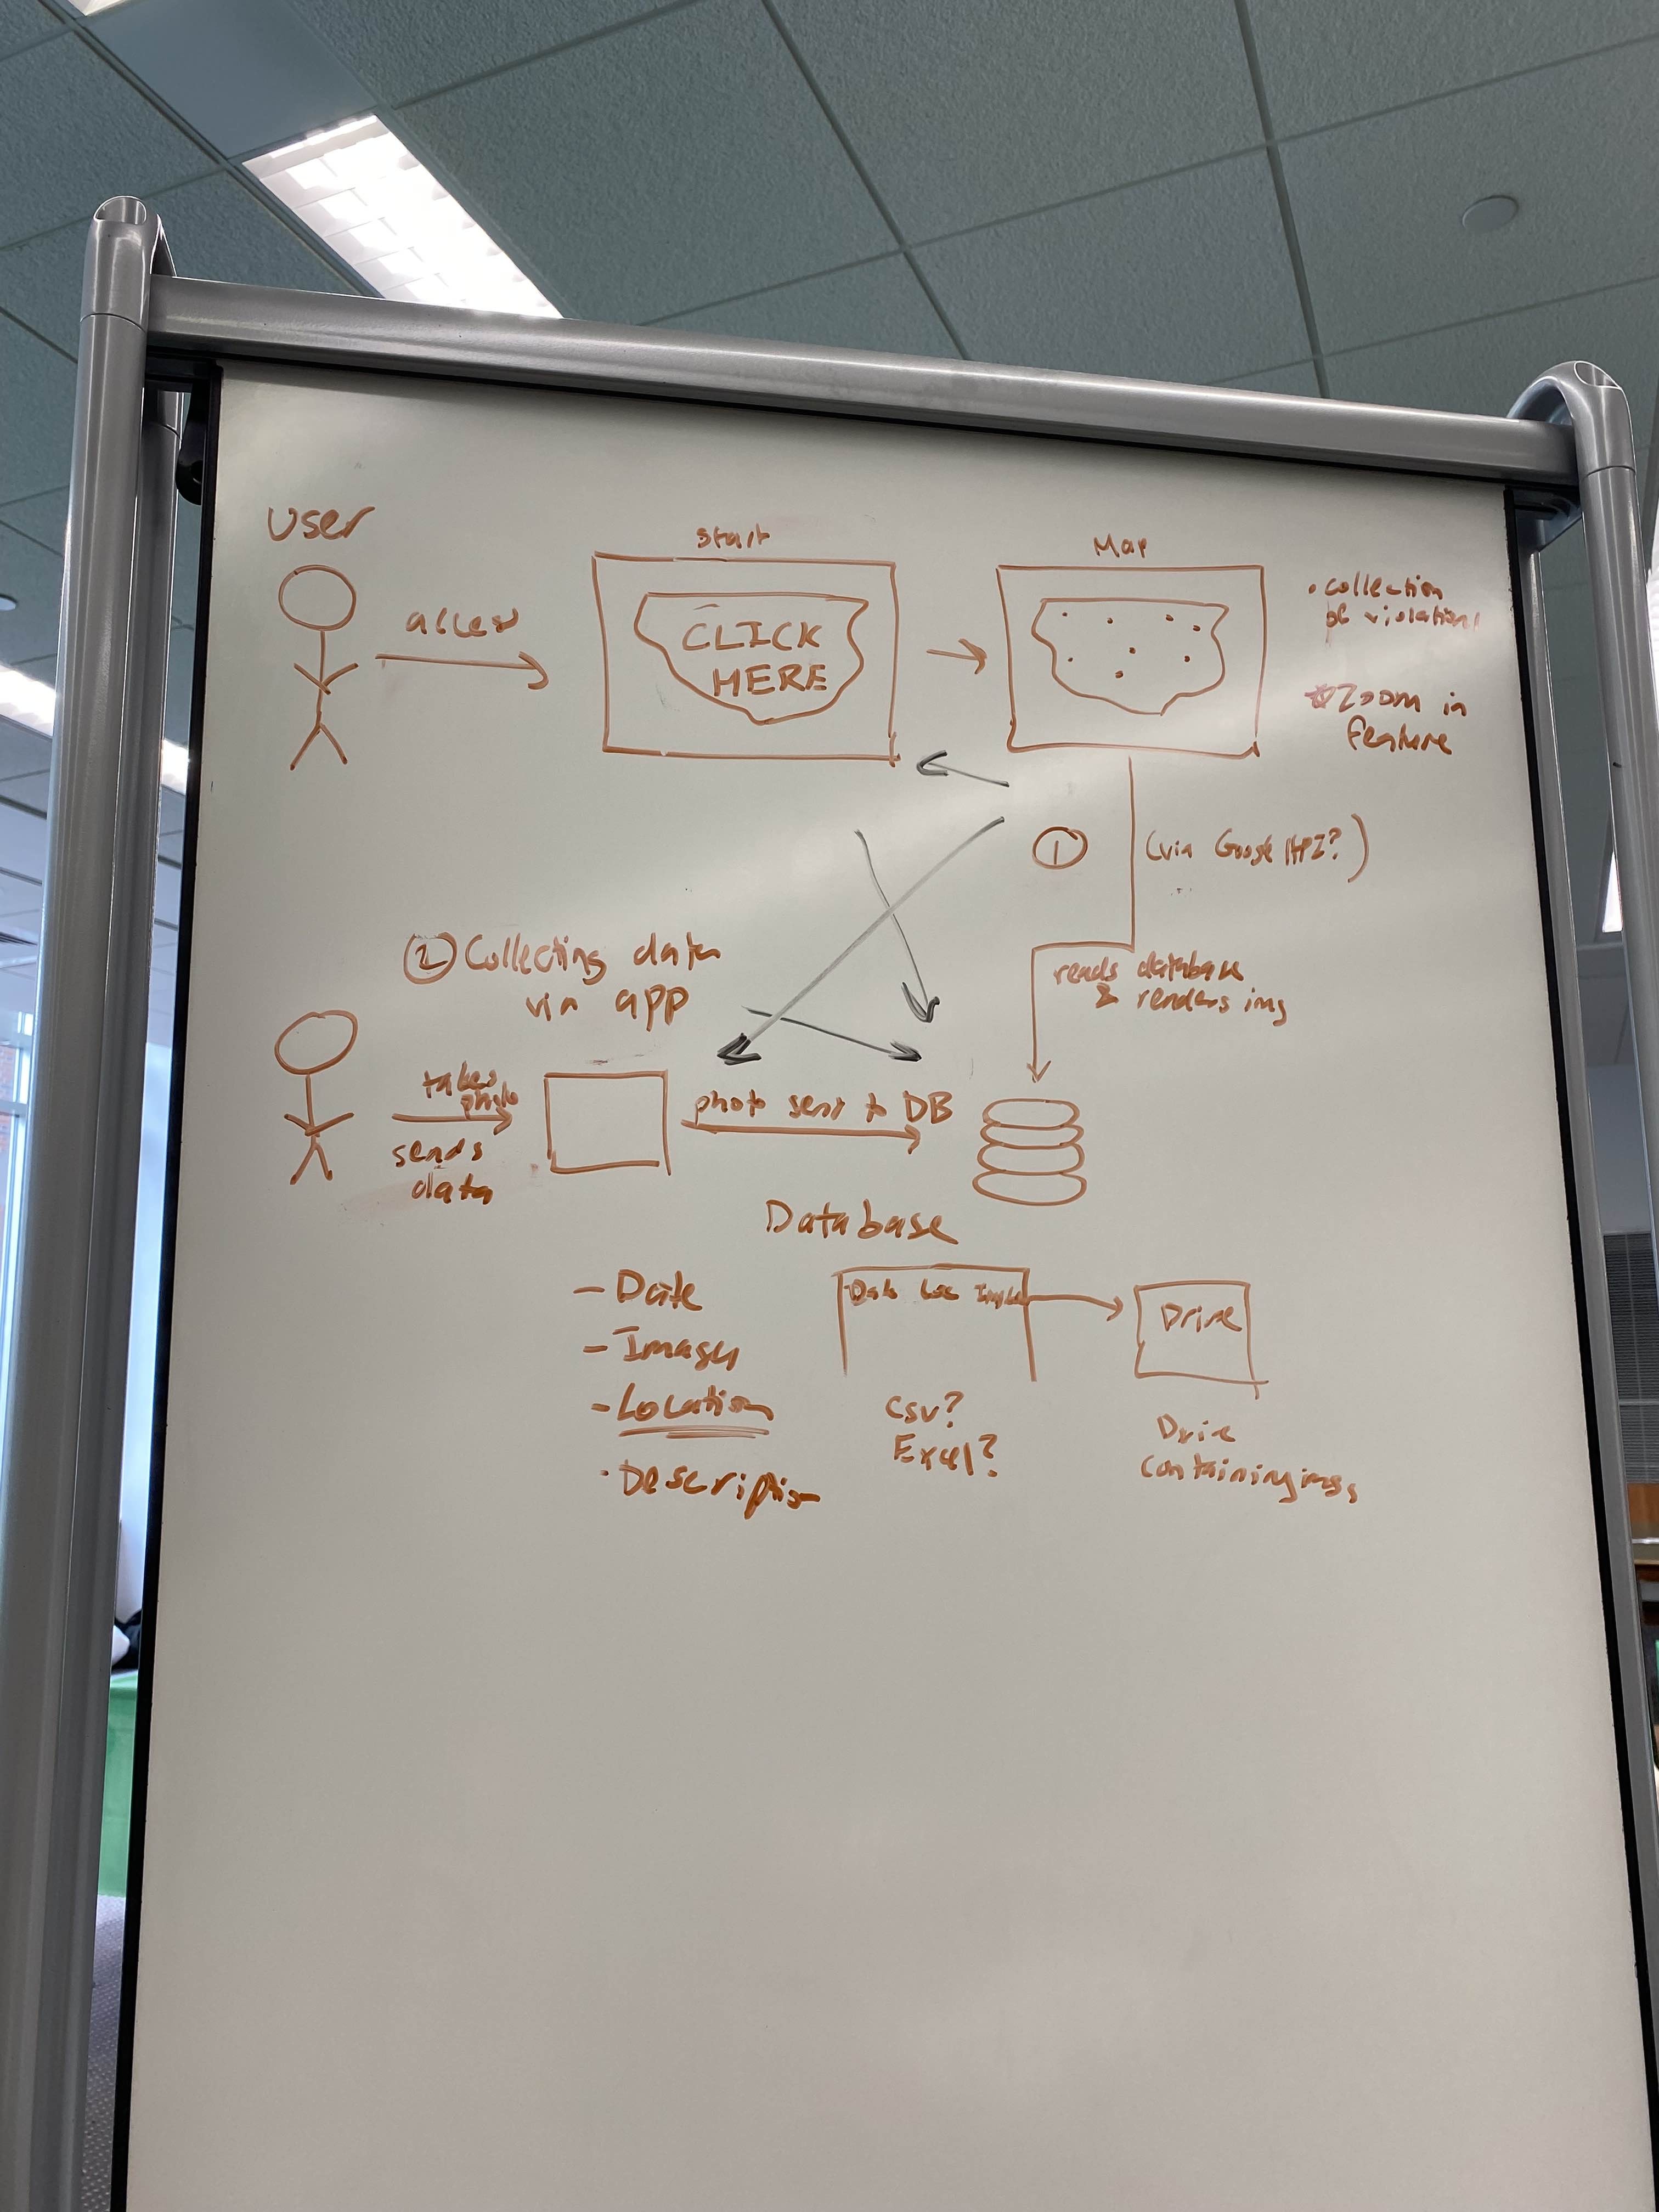 User
start
Map
access
CLICK
HERE
• collection
of violations
*Zoom in
feature
1
(via Google API?)
2 Collecting data
via app
reads database
& renders img
takes
photo
sends
data
photo sent to DB
Database
- Date
- Image
- Location
• Description
Date Loc
Drive
csv?
Excel?
Drive
containing imgs